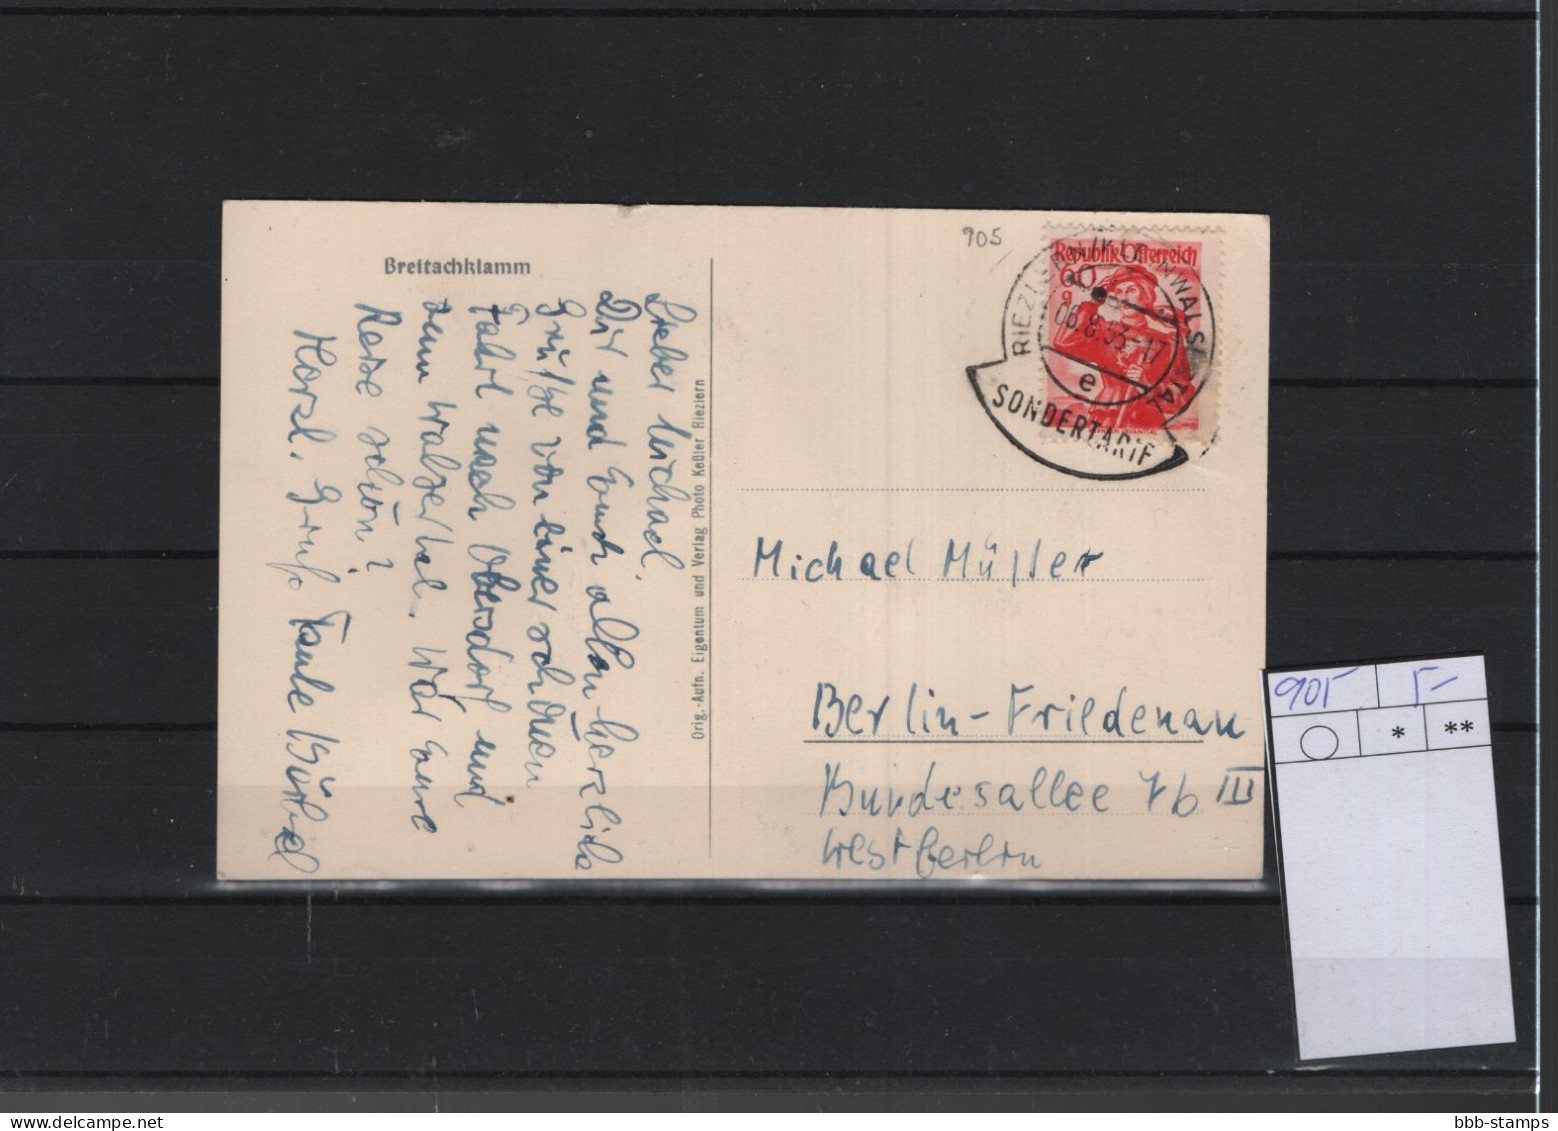 Breitachklamm
905
Lieber Michael,
Dir und Euch allen herzliche
Grüße von einer schönen
Fahrt nach Oberstdorf und
dem Walsertal. War Eure
Reise schön?
Herzl. Gruß Tante Bärbel
Orig.-Aufn. Eigentum und Verlag Photo Keßler Riezlern
Republik Österreich
60
g
RIEZLERN
06.8.53-17
e
SONDERTARIF
Michael Müller
Berlin-Friedenau
Bundesallee 76 III
Westberlin
905 5-
* **
bbb-stamps